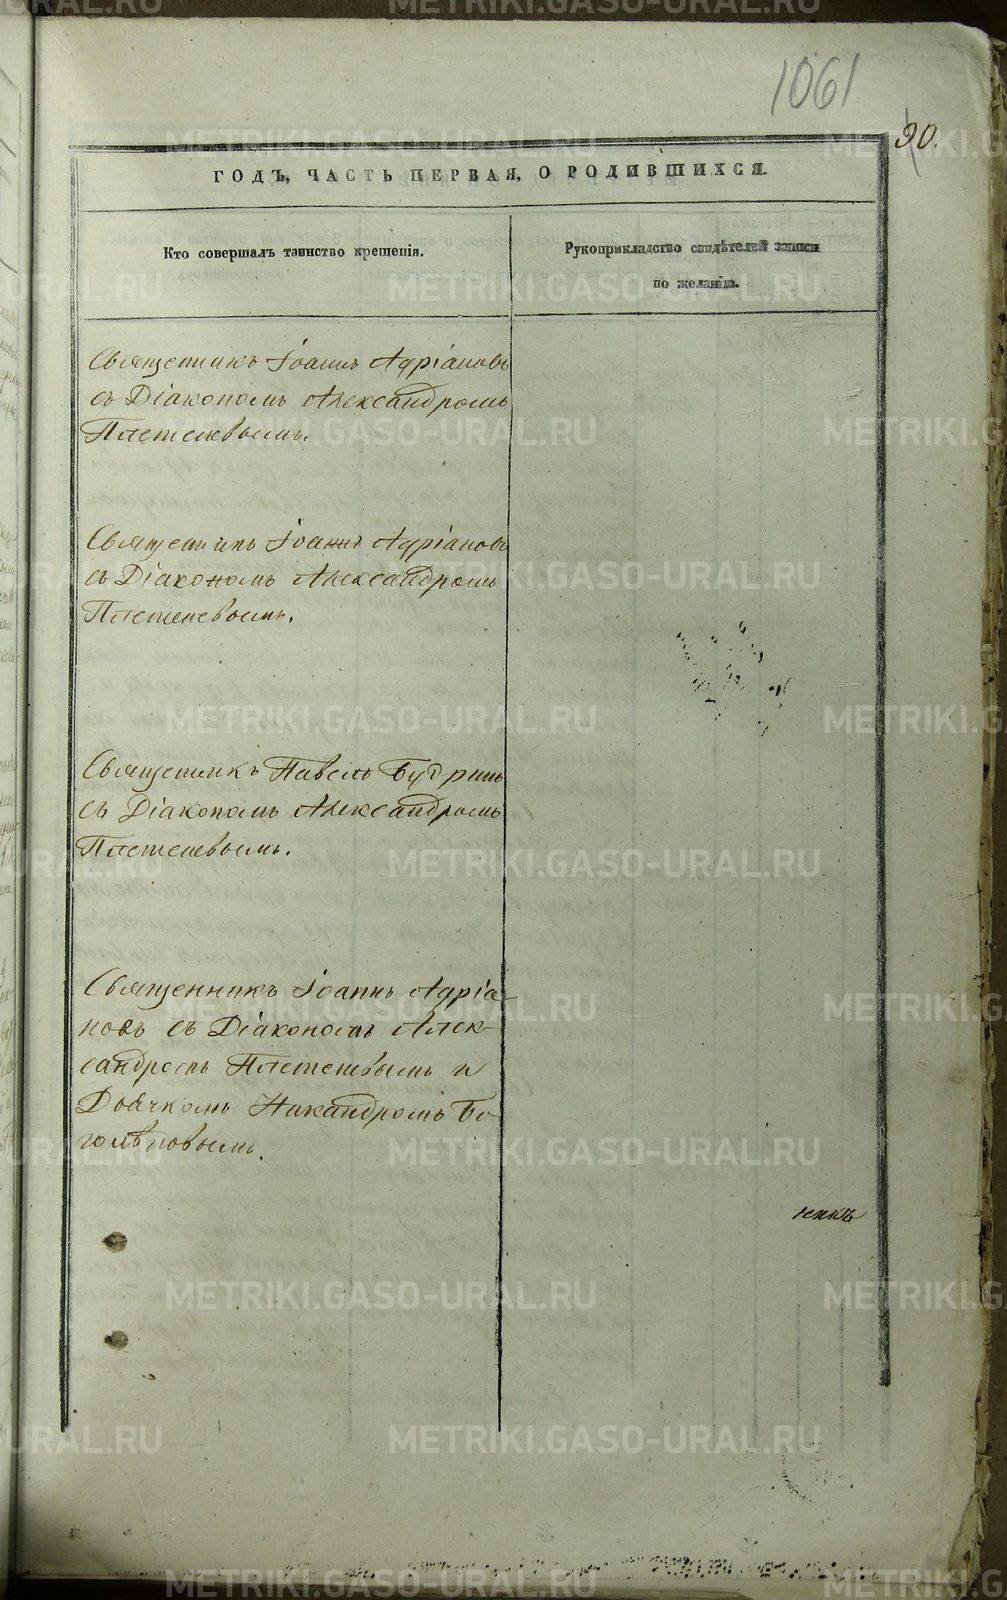 1061
90.
ГОДЪ, ЧАСТЬ ПЕРВАЯ, О РОДИВШИХСЯ.
Кто совершалъ таинство крещенія.
Рукоприкладство свидѣтелей записи
по желанію.
Священникъ Іоаннъ Адріановъ
съ Діакономъ Александромъ
Плетеневымъ.
Священникъ Іоаннъ Адріановъ
съ Діакономъ Александромъ
Плетеневымъ.
Священникъ Павелъ Будринъ
съ Діакономъ Александромъ
Плетеневымъ.
Священникъ Іоаннъ Адріа-
новъ съ Діакономъ Алек-
сандромъ Плетеневымъ и
Дьячкомъ Никандромъ Бо-
голѣповымъ.
METRIKI.GASO-URAL.RU